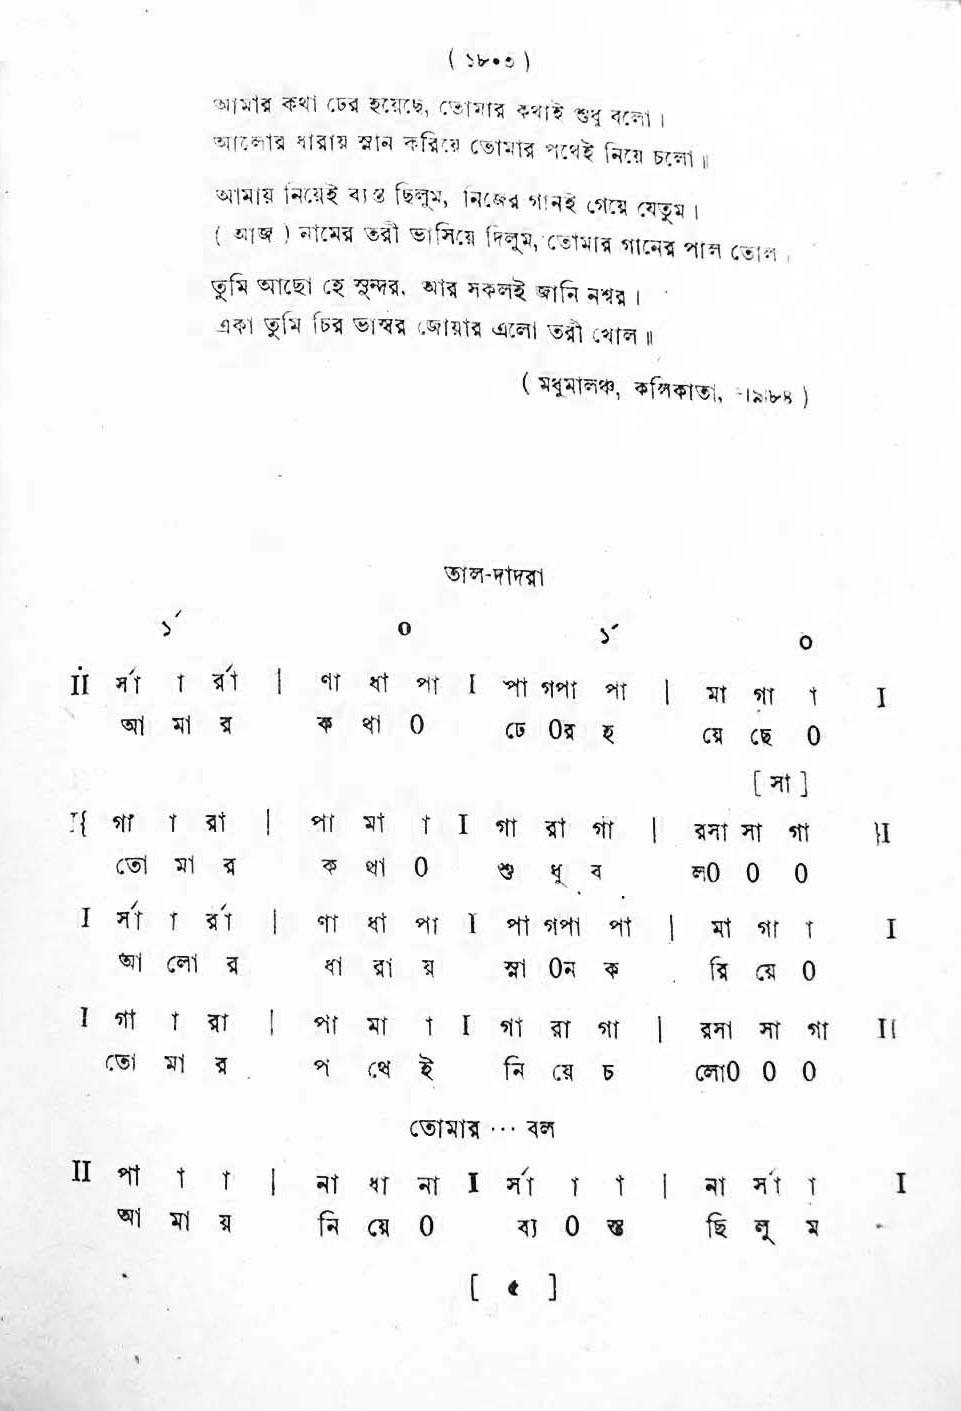 ( ১৮০৩ )
আমার কথা ঢের হয়েছে, তোমার কথাই শুধু বলো।
আলোর ধারায় স্নান করিয়ে তোমার পথেই নিয়ে চলো॥
আমায় নিয়েই ব্যস্ত ছিলুম, নিজের গানই গেয়ে যেতুম।
( আজ ) নামের তরী ভাসিয়ে দিলুম, তোমার গানের পাল তোল।
তুমি আছো হে সুন্দর, আর সকলই জানি নশ্বর।
একা তুমি চির ভাস্বর জোয়ার এলো তরী খোল॥
( মধুমালঞ্চ, কলিকাতা, ১৯৮৪ )
তাল-দাদরা
১´ ০ ১´ ০
II র্সা া র্রা | ণা ধা পা I পা গপা পা | মা গা া I
আ মা র ক থা 0 ঢে 0র হ য়ে ছে 0
[ সা ]
I{ গা া রা | পা মা া I গা রা গা | রসা সা গা }I
তো মা র ক থা 0 শু ধু ব ল0 0 0
I র্সা া র্রা | ণা ধা পা I পা গপা পা | মা গা া I
আ লো র ধা রা য় স্না 0ন ক রি য়ে 0
I গা া রা | পা মা া I গা রা গা | রসা সা গা II
তো মা র প থে ই নি য়ে চ লো0 0 0
তোমার ··· বল
II পা া া | না ধা না I র্সা া া | না র্সা া I
আ মা য় নি য়ে 0 ব্য 0 স্ত ছি লু ম
[ ৫ ]